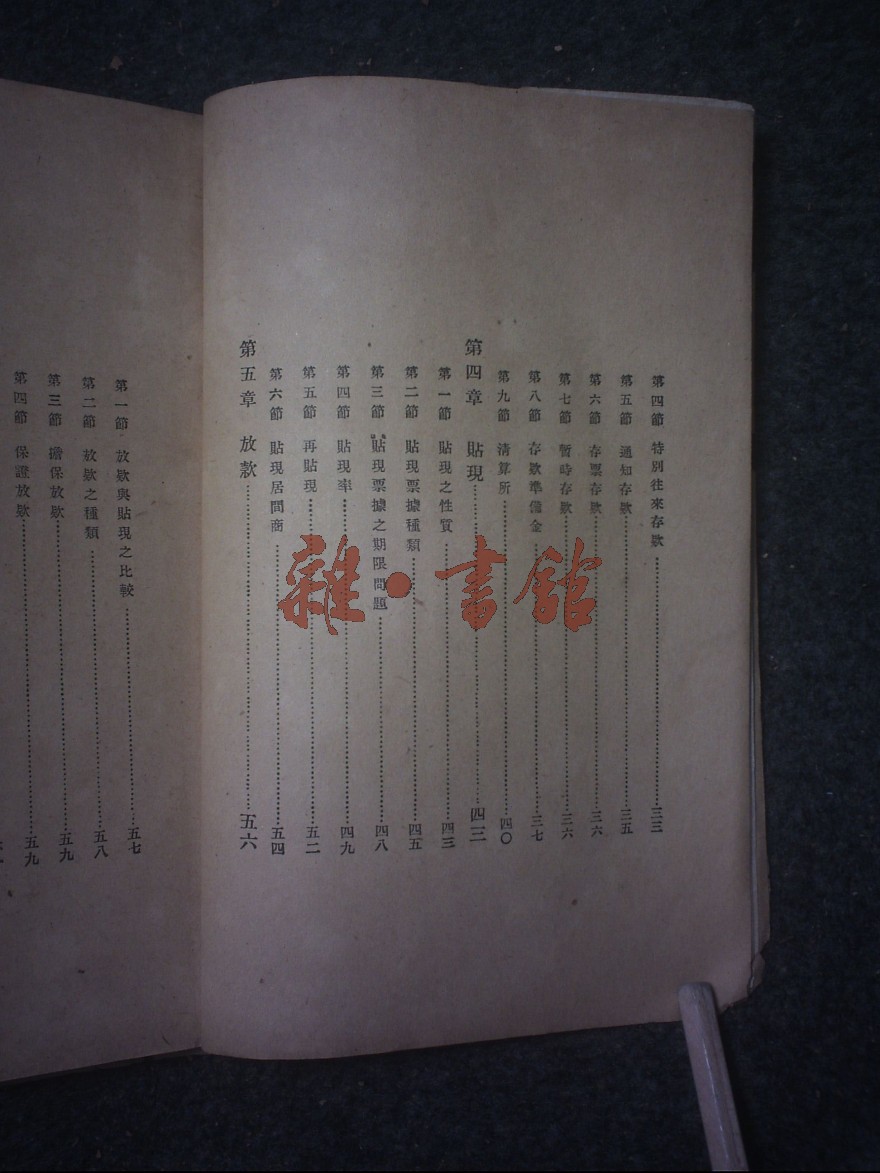 第四節 特別往來存欵 三三
第五節 通知存欵 三五
第六節 存票存欵 三六
第七節 暫時存欵 三六
第八節 存欵準備金 三七
第九節 清算所 四〇
第四章 貼現 四三
第一節 貼現之性質 四三
第二節 貼現票據種類 四五
第三節 貼現票據之期限問題 四八
第四節 貼現率 四九
第五節 再貼現 五二
第六節 貼現居間商 五四
第五章 放款 五六
第一節 放欵與貼現之比較 五七
第二節 放欵之種類 五八
第三節 擔保放欵 五九
第四節 保證放欵 五九
雜·書館